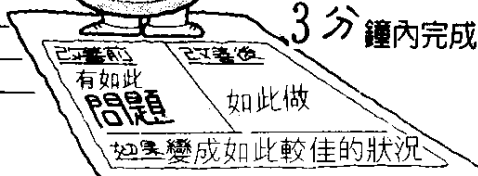 3分鐘內完成
改善前
改善後
有如此
問題
如此做
效果變成如此較佳的狀況